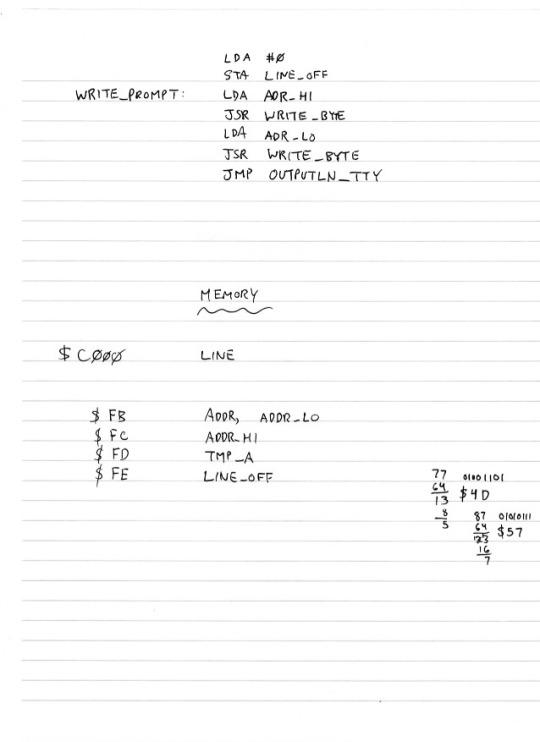 LDA #0
STA LINE_OFF
WRITE_PROMPT: LDA ADR_HI
JSR WRITE_BYE
LDA ADR_LO
JSR WRITE_BYTE
JMP OUTPUTLN_TTY
MEMORY
$C000 LINE
$FB ADDR, ADDR_LO
$FC ADDR_HI
$FD TMP_A
$FE LINE_OFF
77 01001101
64
13 $4D
8
5
87 01010111
64
23 $57
16
7